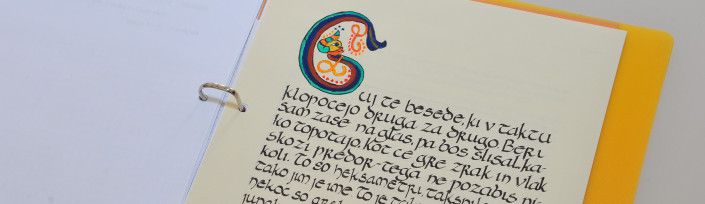 Cuj te besede, ki v taktu
klopocejo druga za drugo Beri
sam zase naglas, pa bos slisal ka-
ko topotajo, kot ce gre zrak in vlak
skozi predor-tega ne pozabis ni-
koli. To so heksametri,
tako jim je ime to je
nekoc so